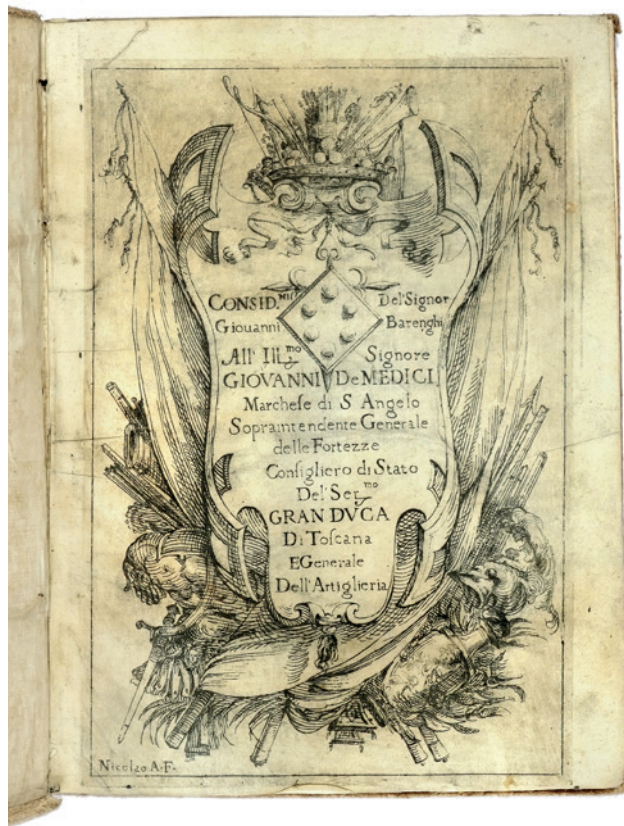 CONSID.NI Del Signor
Giouanni Barenghi
All' Ill.mo Signore
GIOVANNI De MEDICI
Marchese di S Angelo
Sopraintendente Generale
delle Fortezze
Consigliero di Stato
Del Ser.mo
GRAN DVCA
Di Toscana
E Generale
Dell'Artiglieria
Nicolao A.F.